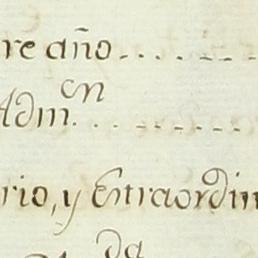 re año
Adm.on
rio, y Extraordin
da